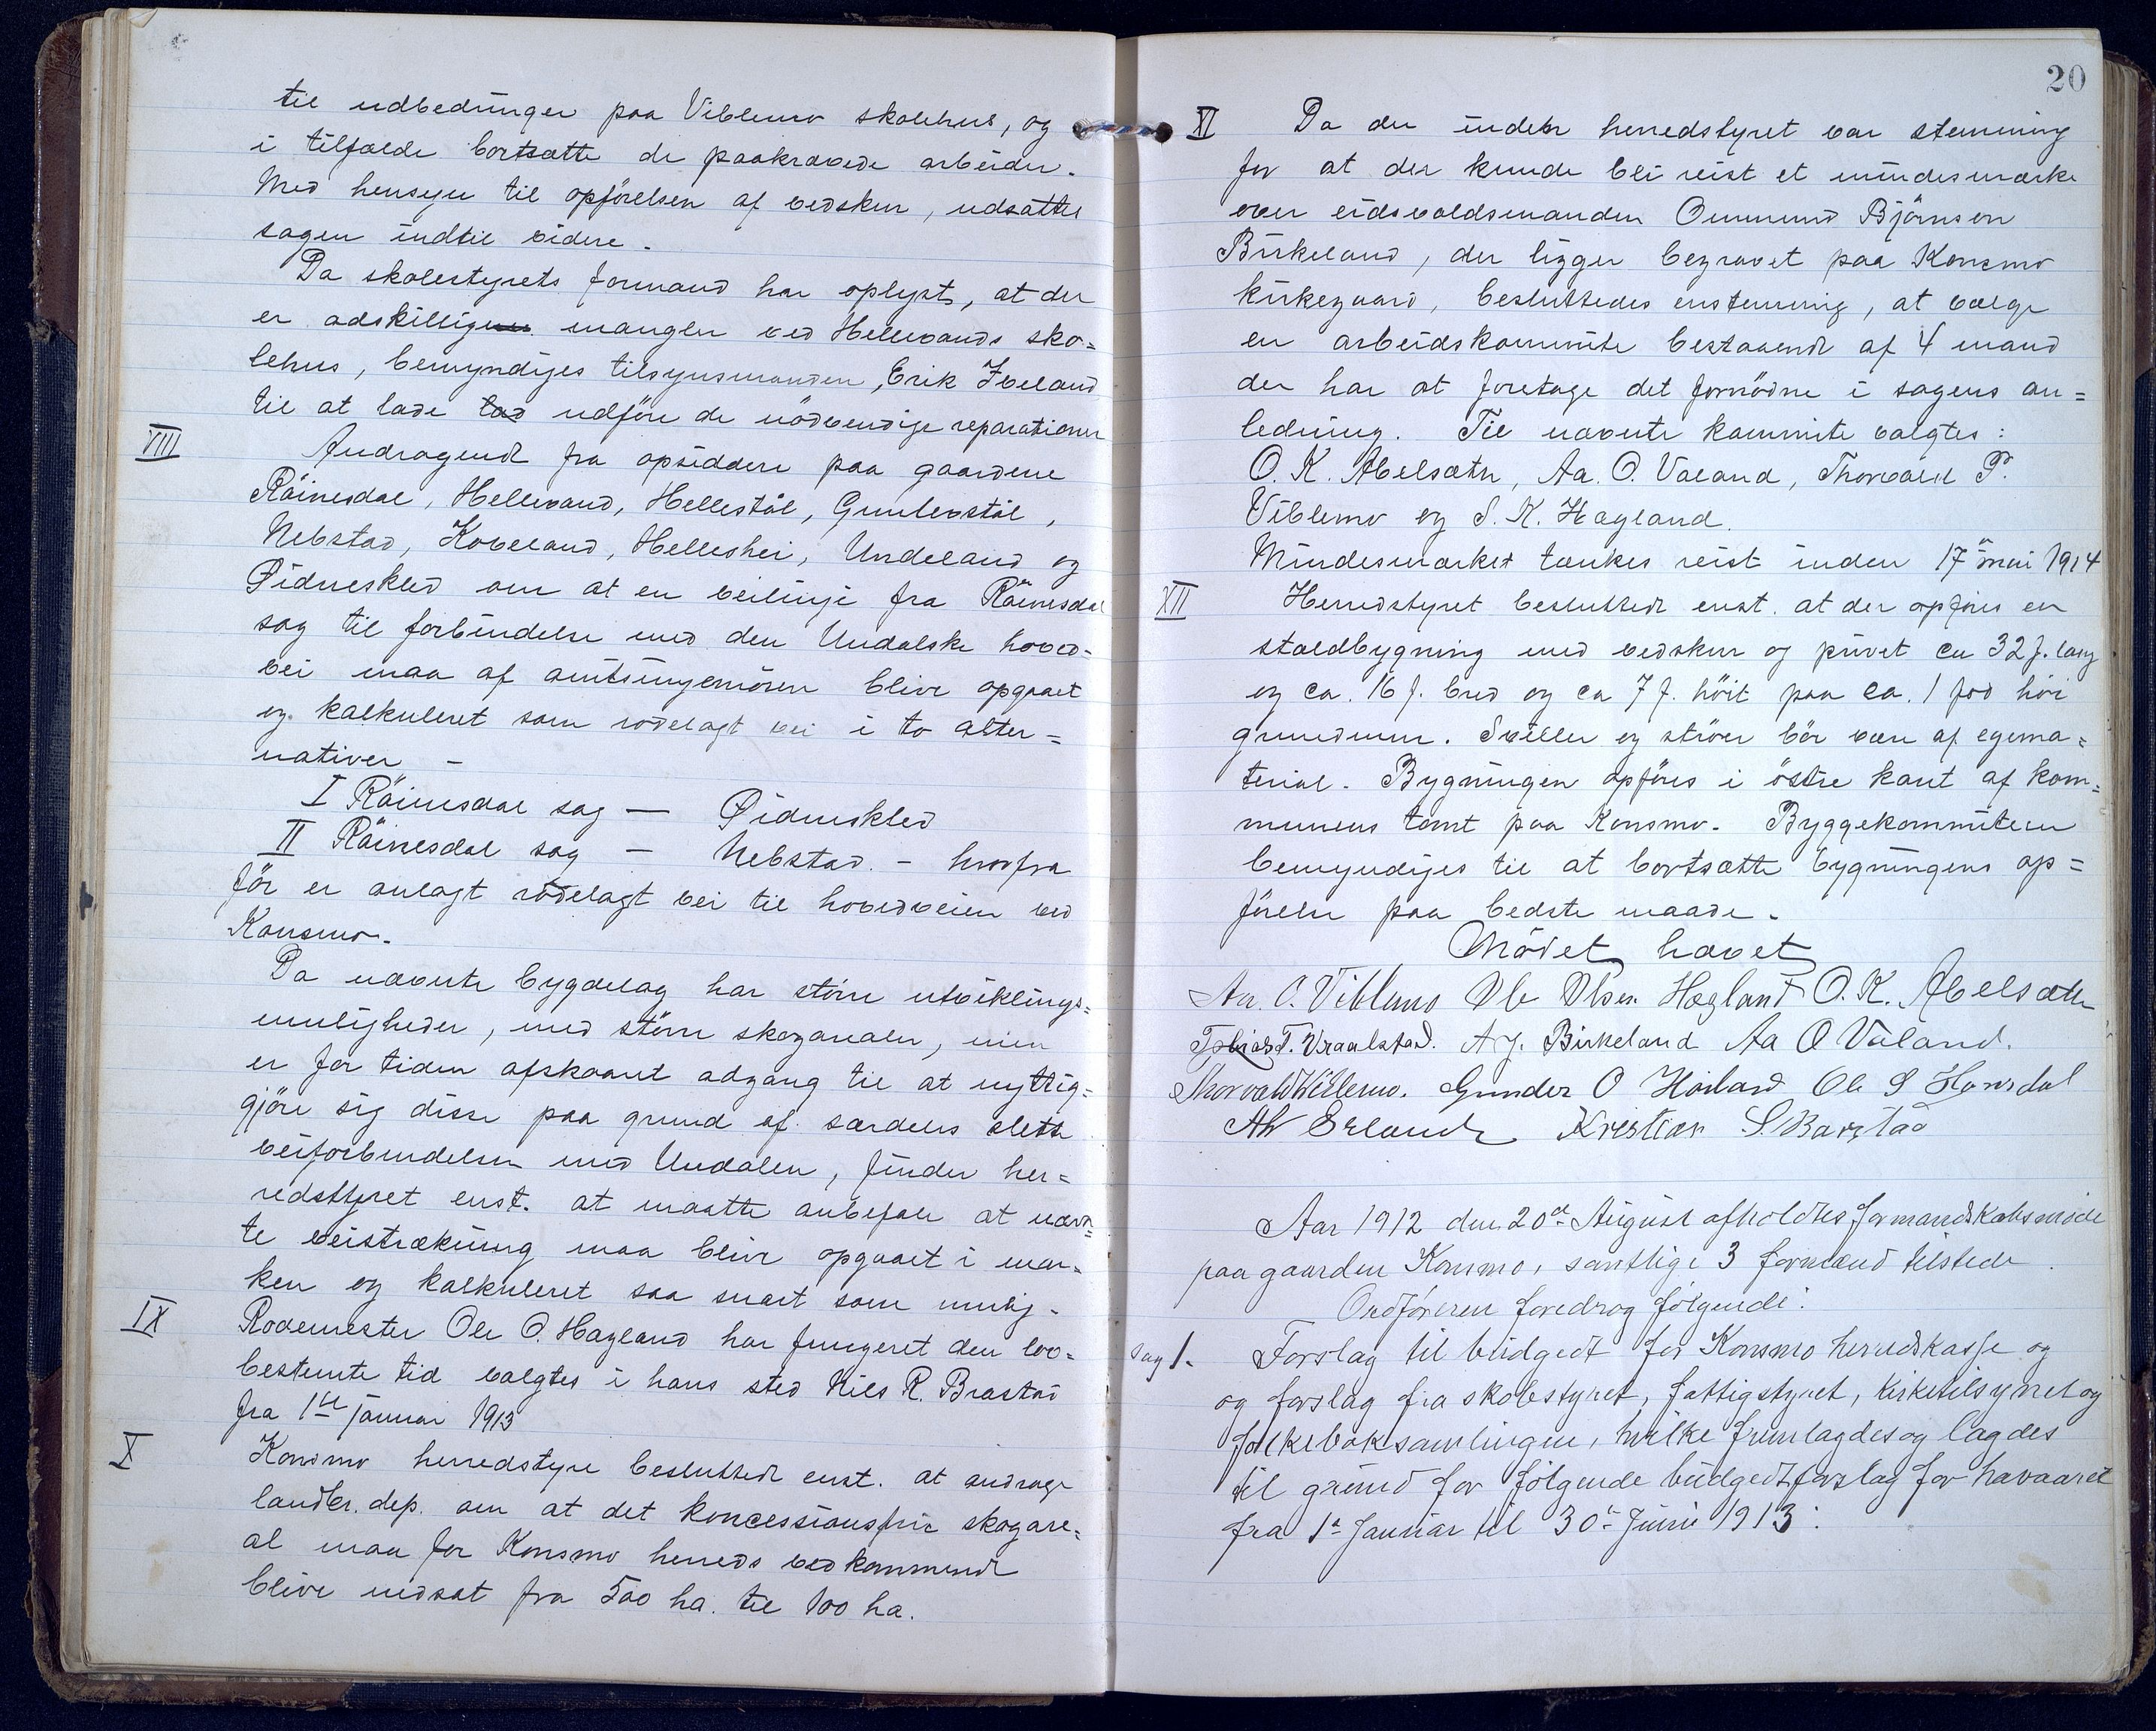 til udbedringer paa Viblemo skolehus, og
i tilfælde bortsætte de paakrævede arbeider.
Med hensyn til opförelsen af vedskur, udsættes
sagen indtil videre.
Da skolestyrets formand har oplyst, at der
er adskillig mangler ved Hellevands sko=
lehus, bemyndiges tilsynsmanden, Erik Iveland
til at lade udföre de nödvendige reparationer
VIII Andragende fra opsiddere paa gaardene
Röinesdal, Hellevand, Hellestöl, Gunlevstöl,
Nebstad, Koveland, Helleshei, Undeland og
Øidneskled om at en veilinje fra Röinesdal
sag til forbindelse med den Undalske hoved=
vei maa af amtsingeniören blive opgaaet
og kalkuleret som rodelagt vei i to alter=
nativer -
I Röinesdal sag — Øidneskled
II Röinesdal sag — Nebstad. - hvorfra
för er anlagt rodelagt vei til hovedveien ved
Konsmo.
Da nævnte bygdelag har större utviklings=
muligheder, med större skogarealer, men
er for tiden afskaaret adgang til at nyttig=
gjöre sig disse paa grund af særdeles slette
veiforbindelser med Undalen, finder her=
redstyret enst. at maatte anbefale at nævn=
te veistrækning maa blive opgaaet i mar=
ken og kalkuleret saa snart som mulig.
IX Rodemester Ole O. Hagland har fungeret den lov=
bestemte tid valgtes i hans sted Nils R. Brastad
fra 1ste januar 1913
X Konsmo herredstyre besluttede enst. at andrage
landbr. dep. om at det koncessionsfrie skogare=
al maa for Konsmo herreds vedkommende
blive nedsat fra 500 ha. til 100 ha.
20
XI Da der inden herredstyret var stemning
for at der kunde bli reist et mindesmærke
over eidsvoldsmanden Ommund Björnson
Birkeland, der ligger begravet paa Konsmo
kirkegaard, besluttedes enstemmig, at vælge
en arbeidskommite bestaaende af 4 mand
der har at foretage det fornödne i sagens an=
ledning. Til nævnte kommite valgtes:
O. K. Abelsæter, Aa. O. Valand, Thorvald P.
Viblemo og S. K. Hagland.
Mindesmærket tænkes reist inden 17de mai 1914
XII Herredstyret besluttede enst. at der opföres en
staldbygning med vedskur og privet ca 32 f. lang
og ca. 16 f. bred og ca 7 f. höit paa ca. 1 fod höi
grundmur. Sviller og stöer bör være af egema=
terial. Bygningen opföres i östre kant af kom=
munens tomt paa Konsmo. Byggekommiteen
bemyndiges til at bortsætte bygningens op=
förelse paa bedste maade.
Mödet hævet
Aa. O. Viblemo Ole Olsen Hagland O. K. Abelsæter
Tobias T. Vraalstad. A J. Birkeland Aa O Valand.
Thorvald Viblemo. Gunder O Höiland Ole S Homdal
AK Erland Kristian S. Barstad
Aar 1912 den 20de August afholdtes formandskabsmöde
paa gaarden Konsmo, samtlige 3 formænd tilstede.
Ordföreren foredrog fölgende:
Sag 1. Forslag til budgedt for Konsmo herredskasse og
og forslag fra skolestyret, fattigstyret, kirketilsynet og
folkeboksamlingen, hvilke fremlagdes og lagdes
til grund for fölgende budgedtforslag for havaaret
fra 1ste Januar til 30te Juni 1913: